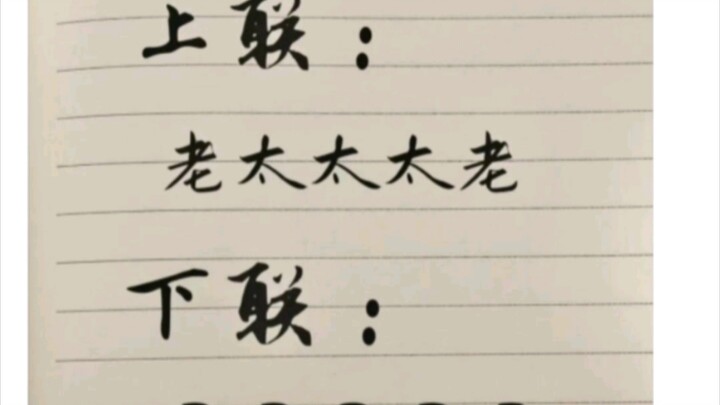 上联：
老太太太老
下联：